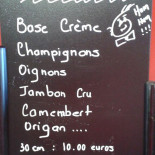 Base Crème
Hum
Hum
!!!
Champignons
Oignons
Jambon Cru
Camembert
Origan ....
30 cm : 10.00 euros